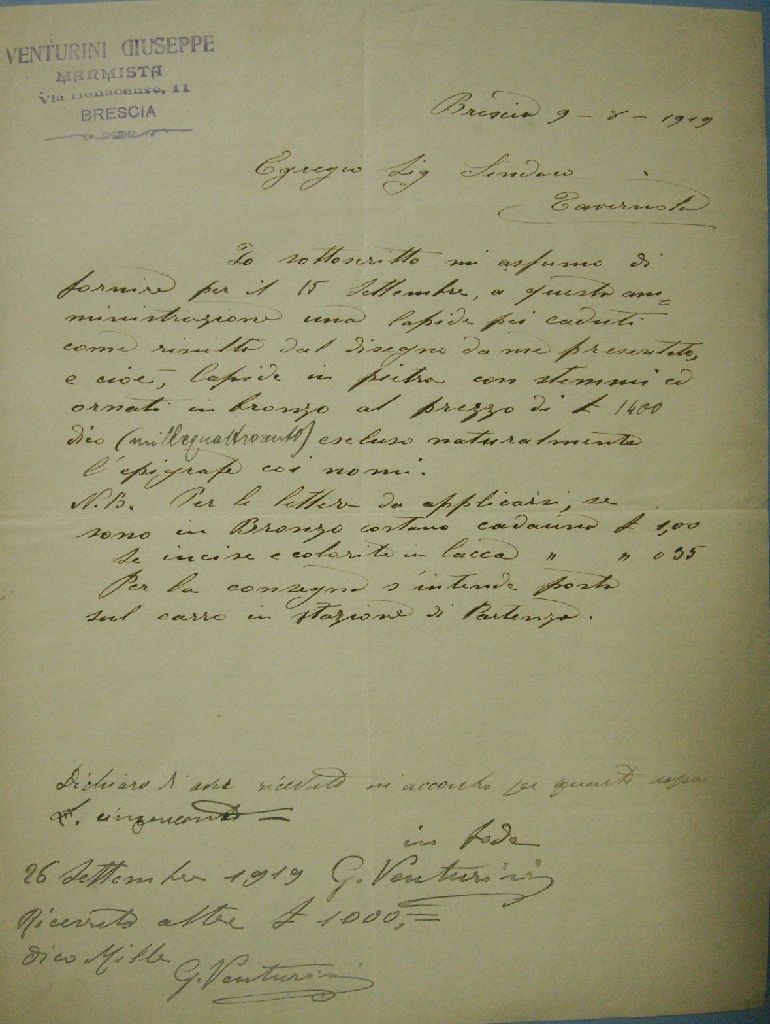 VENTURINI GIUSEPPE
MARMISTA
Via Benacense, 11
BRESCIA
Brescia 9 - 8 - 1919
Egregio Sig Sindaco
Tavernola
Io sottoscritto mi assumo di
fornire per il 15 Settembre, a questa am=
ministrazione una lapide pei caduti
come risulta dal disegno da me presentato,
e cioè, lapide in pietra con stemmi ed
ornati in bronzo al prezzo di £ 1400
dico (millequattrocento) escluso naturalmente
l'epigrafe coi nomi.
N.B. Per le lettere da applicarsi, se
sono in Bronzo costano cadauna £ 1,00
Se incise e colorite in lacca " " 0 35
Per la consegna s'intende posta
sul carro in stazione di Partenza.
Dichiaro di aver ricevuto in acconto per quanto sopra
£. cinquanta =
in fede
26 Settembre 1919 G. Venturini
Ricevuto altre £ 1000,=
dico Mille
G. Venturini